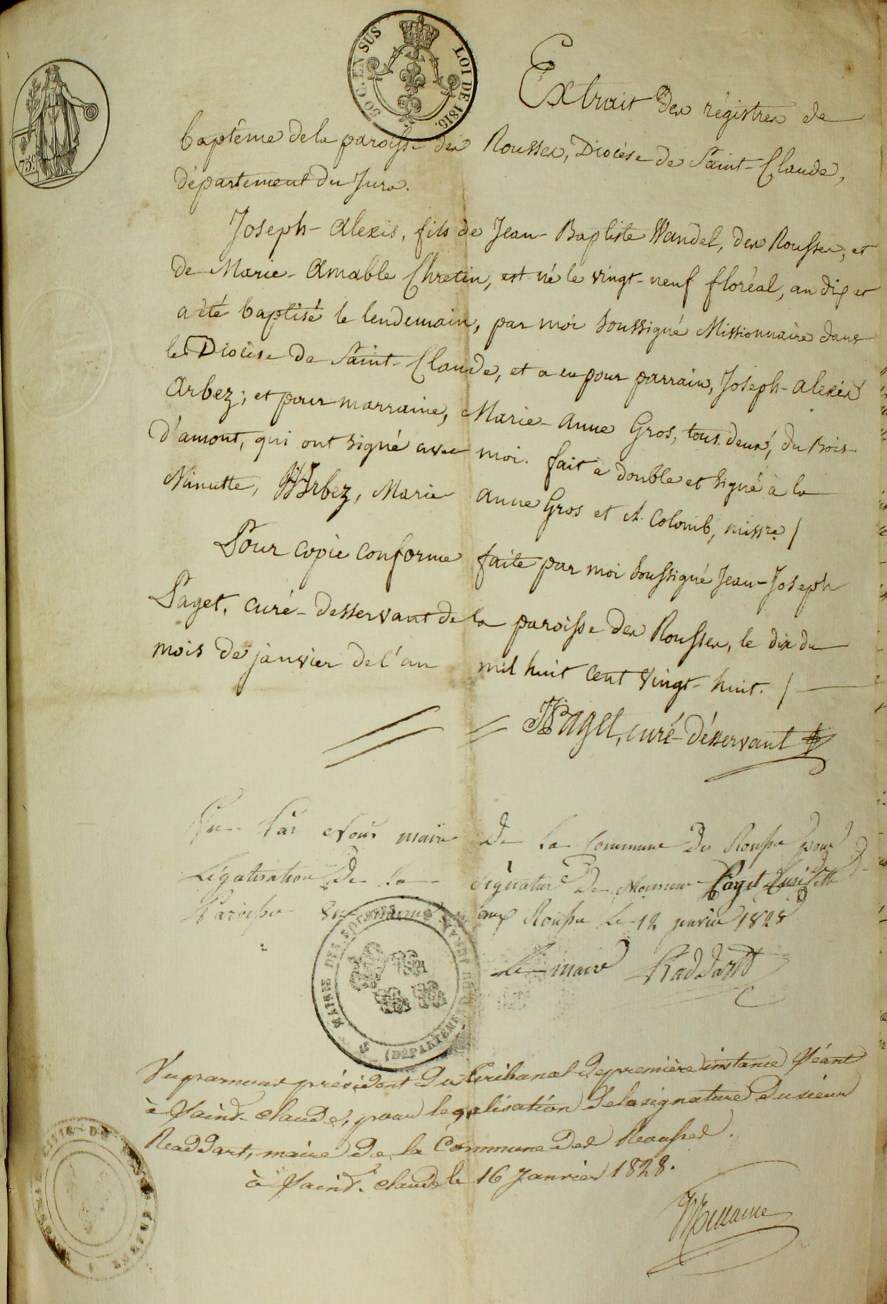 50 C. EN SUS
LOI DE 1816.
Extrait des régistres de
baptême de la paroisse des Rousses, Diocèse de Saint-Claude,
département du Jura.
Joseph-Alexis, fils de Jean-Baptiste Vandel, des Rousses, et
de Marie-Amable Chretin, est né le vingt-neuf floréal, an dix et
a été baptisé le lendemain, par moi soussigné Missionnaire dans
le Diocèse de Saint-Claude, et a eu pour parrain, Joseph-Alexis
Arbez; et pour marraine, Marie-Anne Gros, tous deux, du bois-
d'amont, qui ont signé avec moi. fait à double et signé à la
Minutte, Arbez, Marie Anne Gros et A. Colomb, missre /
Pour copie conforme faite par moi soussigné Jean-Joseph
Paget, curé-desservant de la paroisse des Rousses, le dix du
mois de janvier de l'an mil huit cent vingt-huit. /
JJPaget, curé-désservant
Vu Par Nous maire de la Commune des Rousses pour
Légalisation de la signature de Monsieur Paget
Paroisse aux Rousses le 12 janvier 1828
Le maire Raddart
MAIRIE DES ROUSSES
(DÉPARTEM
Vu par nous président du tribunal de première instance séant
à Saint-claude, pour legalisation de la signature du sieur
Readdart, maire de la Commune des Rousses.
à Saint claude le 16 Janvier 1828.